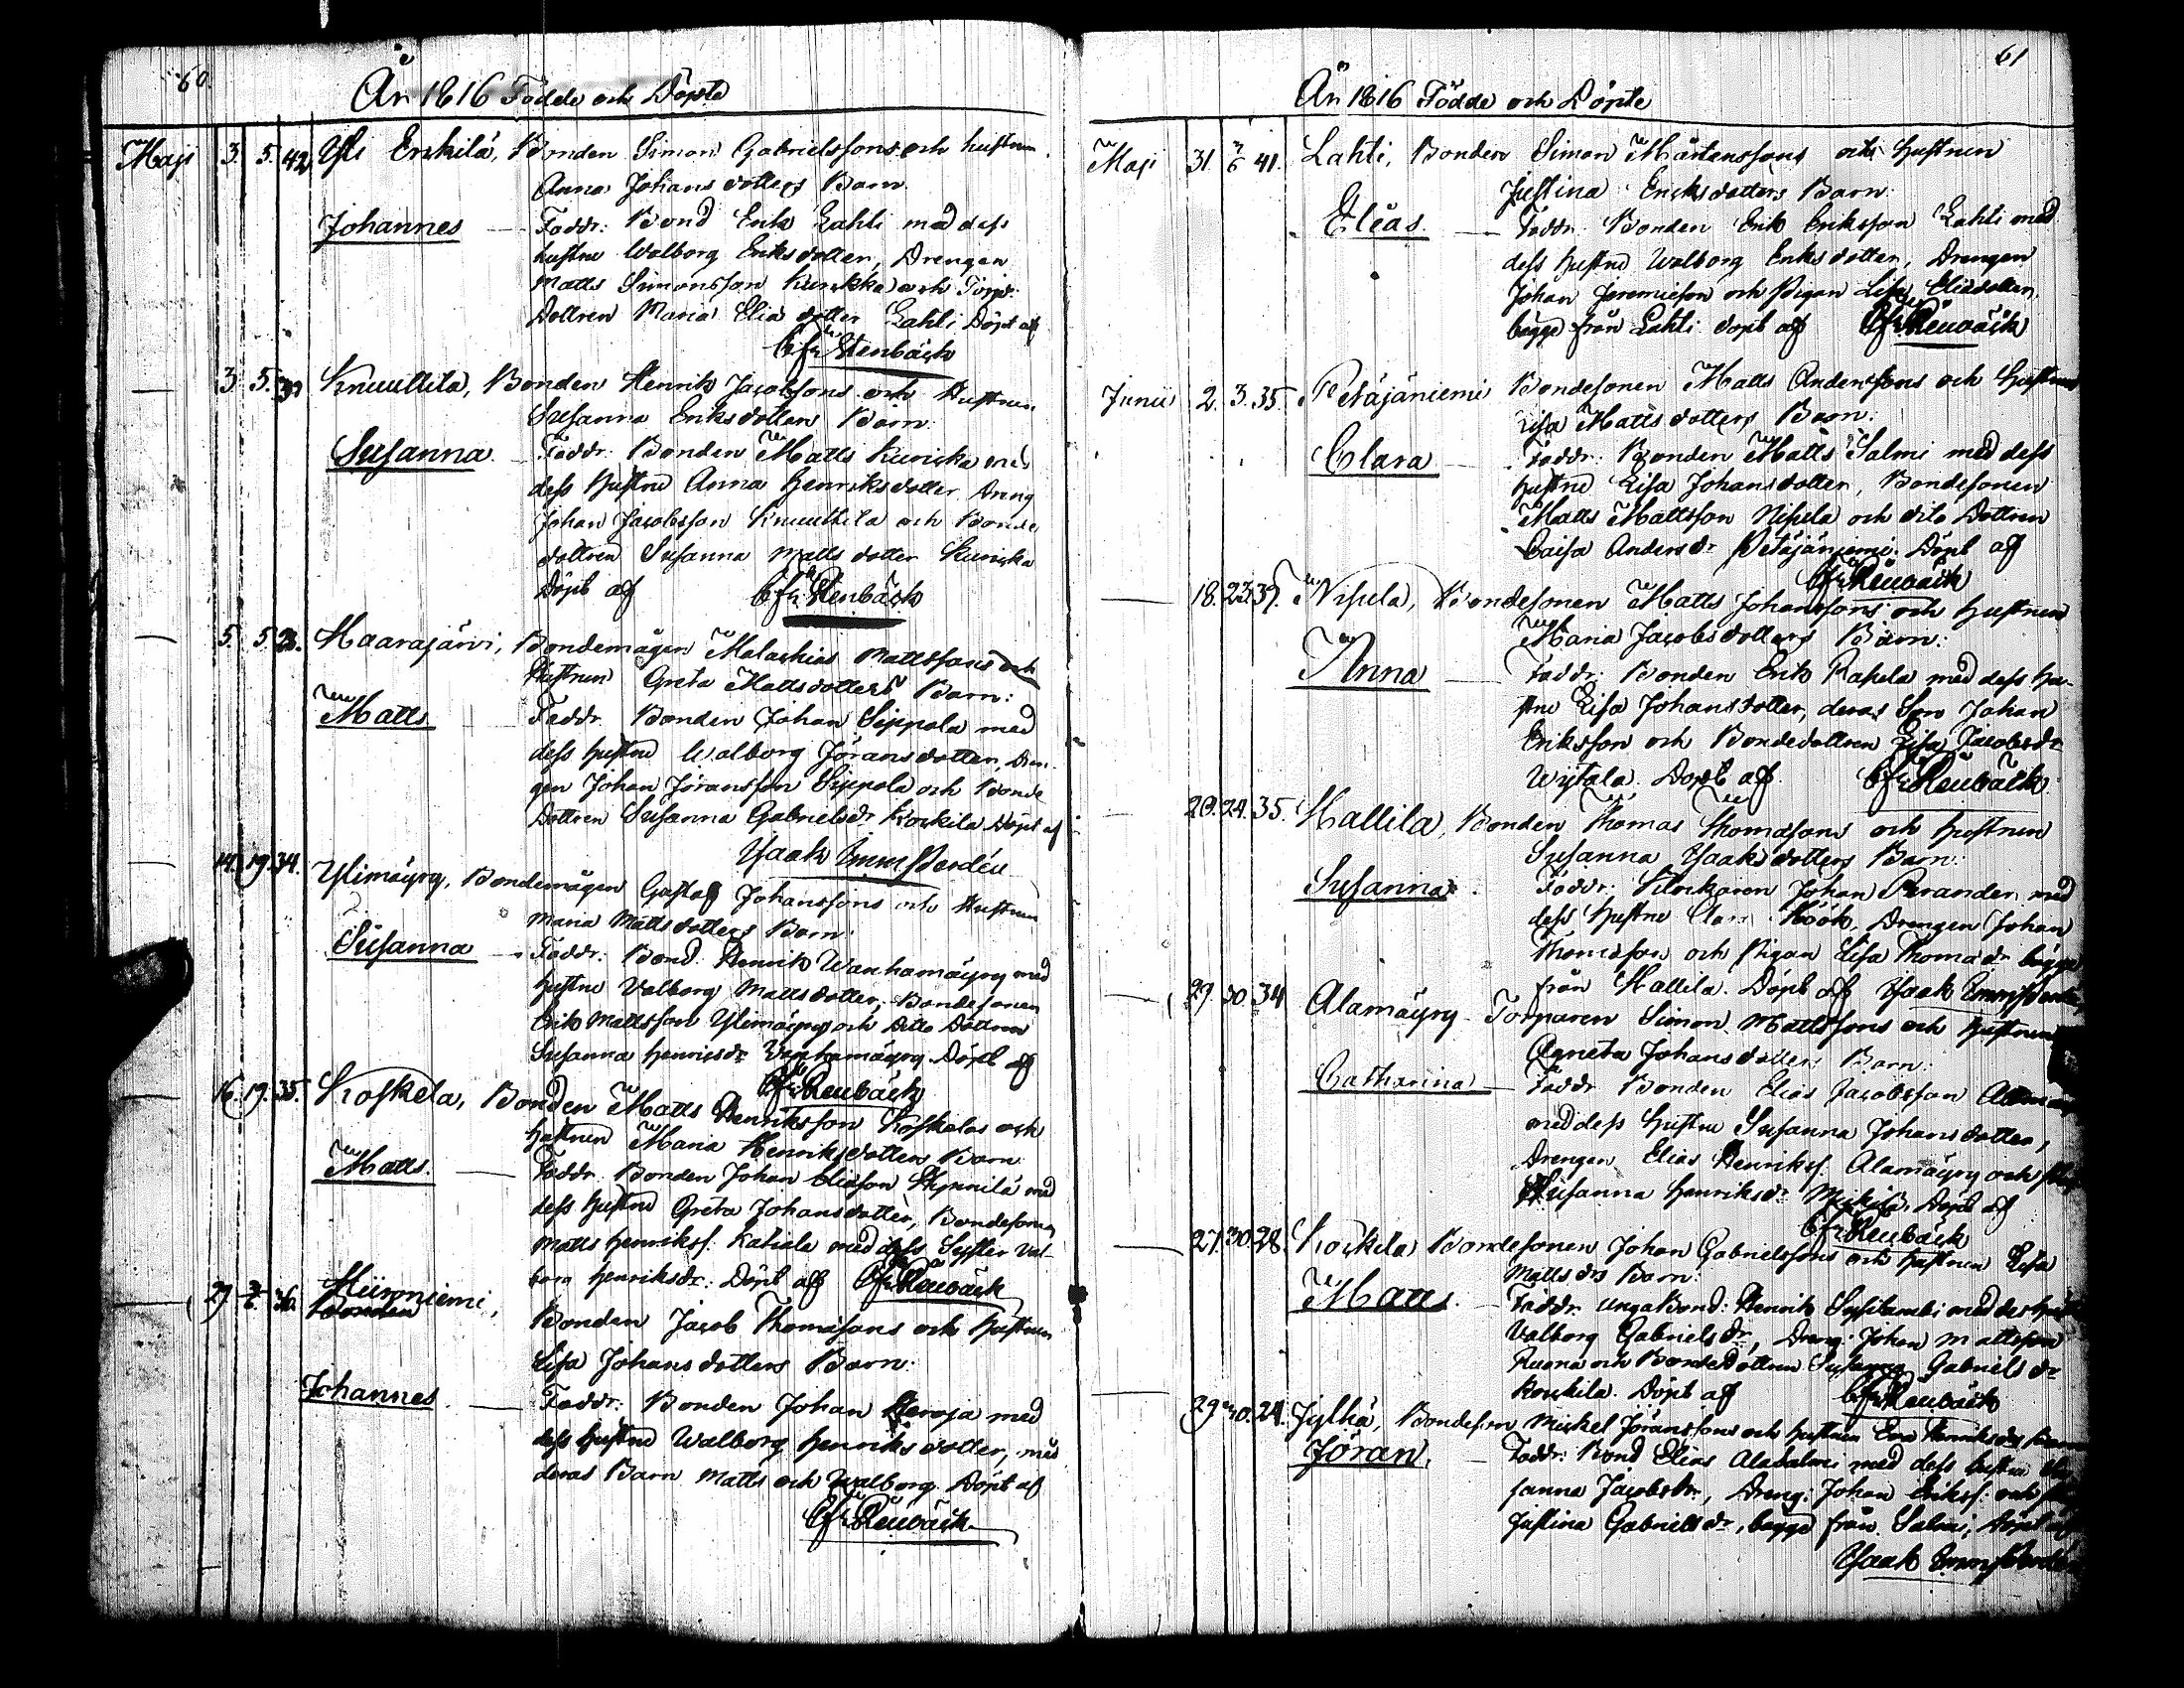 60.
År 1816 Födde och Döpte
Maji 3. 5. 42. Yli Erkilä, Bonden Simon Gabrielssons och hustrun
Anna Johans dotters Barn.
Johannes — Faddr: Bond Erik Lahti med dess
hustru Walborg Eriksdotter, Drengen
Matts Simonsson Kurikka och
Dottren Maria Elia dotter Lahti Döpt af
Stenbäck
— 3. 5. Knuuttila, Bonden Henrik Jacobssons och Hustrun
Susanna Eriksdotters Barn
Susanna — Faddr: Bonden Matts Kuricka med
dess Hustru Anna Henriksdotter Dreng
Johan Jacobsson Knuuttila och Bonde
dottren Susanna Matts dotter Kuricka
Döpt af Stenbäck
— 5. 5. 28. Haarajärvi, Bondemågen Malachias Mattssons och
Hustrun Greta Mattsdotters Barn:
Matts — Faddr. Bonden Johan Sippola med
dess hustru Walborg Jöransdotter, Dren-
gen Johan Jöransson Sippola och Bonde
Dottren Susanna Gabrielsdr. Koskila Döpt af
Ysaak
— 14. 19. 34. Ylimäyry, Bondemågen Gustaf Johanssons och Hustrun
Maria Mattsdotters Barn:
Susanna — Faddr: Bond Henrik Wanhamäyry med
hustru Valborg Mattsdotter, Bondesonen
Erik Mattsson Ylimäyry och Ditto Dottren
Susanna Henricsdr Vanhamäyry Döpt af
16. 19. 35. Koskela, Bonden Matts Henriksson Koskelas och
Hustrun Maria Henriksdotters Barn
Matts — Faddr. Bonden Johan Eliasson Hynnilä med
dess Hustru Greta Johansdotter, Bondesonen
Matts Henrikss. Katiala med dess Syster Val-
borg Henriksdr: Döpt af
— 29. 2/6. 36. Niinniemi,
Bonden Jacob Thomassons och Hustrun
Lisa Johansdotters Barn:
Johannes — Faddr: Bonden Johan med
dess Hustru Walborg Henriksdotter, med
deras Barn Matts och Walborg. Döpt af
61
År 1816 Födde och Döpte
Maji 31. 41. Lahti, Bonden Simon Mårtenssons och Hustrun
Justina Eriksdotters Barn:
Elias. — Faddr: Bonden Erik Eriksson Lahti med
dess Hustru Walborg Eriksdotter, Drengen
Johan Jeremiesson och Pigan Lisa Eliædotter
bägge från Lahti döpt af
Junii 2. 3. 35. Petäjäniemi Bondesonen Matts Anderssons och Hustrun
Lisa Matts dotters Barn:
Clara — Faddr: Bonden Matts Salmi med dess
Hustru Lisa Johansdotter, Bondesonen
Matts Mattsson Nisula och dito Dottren
Caisa Andersdr Petäjäniemi. Döpt af
— 18. 23. 37. Nisula, Bondesonen Matts Johanssons och Hustrun
Maria Jacobsdotters Barn:
Anna — Faddr: Bonden Erik Rasula med dess Hu-
stru Lisa Johansdotter, deras Son Johan
Eriksson och Bondedottren Lisa Jacobsdr
Wiitala. Döpt af
— 20. 24. 35. Hallila, Bonden Thomas Thomassons och Hustrun
Susanna Ysaaks dotters Barn:
Susanna — Faddr: Klockaren Johan med
dess Hustru Clara Höök, Drengen Johan
Thomasson och Pigan Lisa Thomædr bägge
från Hallila. Döpt af Ysaak
— 29. 30. 34 Alamäyry Torparen Simon Mattssons och Hustrun
Agneta Johansdotters Barn:
Catharina — Faddr Bonden Elias Jacobsson
med dess Hustru Susanna Johansdotter,
Drengen Elias Henrikss. Alamäyry och
Susanna Henriksdr. Döpt af
27. 30. 28. Koskela Bondesonen Johan Gabrielssons och Hustrun Lisa
Mattsdrs Barn:
Matts. — Faddr. unga Bond: Henrik med dess
Valborg Gabrielsdr, Dreng: Johan Mattsson
och Bondedottren Susanna Gabrielsdr
Koskela. Döpt af
29. 30. 24. Jylhä, Bondeson Mickel Jöranssons och Hustrun Eva Henriksdrs Barn
Jöran, — Faddr: Bond Elias Alasalmi med dess hustru
sanna Jacobsdr, Dreng: Johan Erikss. och
Justina Gabrielsdr, bägge från Salmi, Döpt af
Ysaak